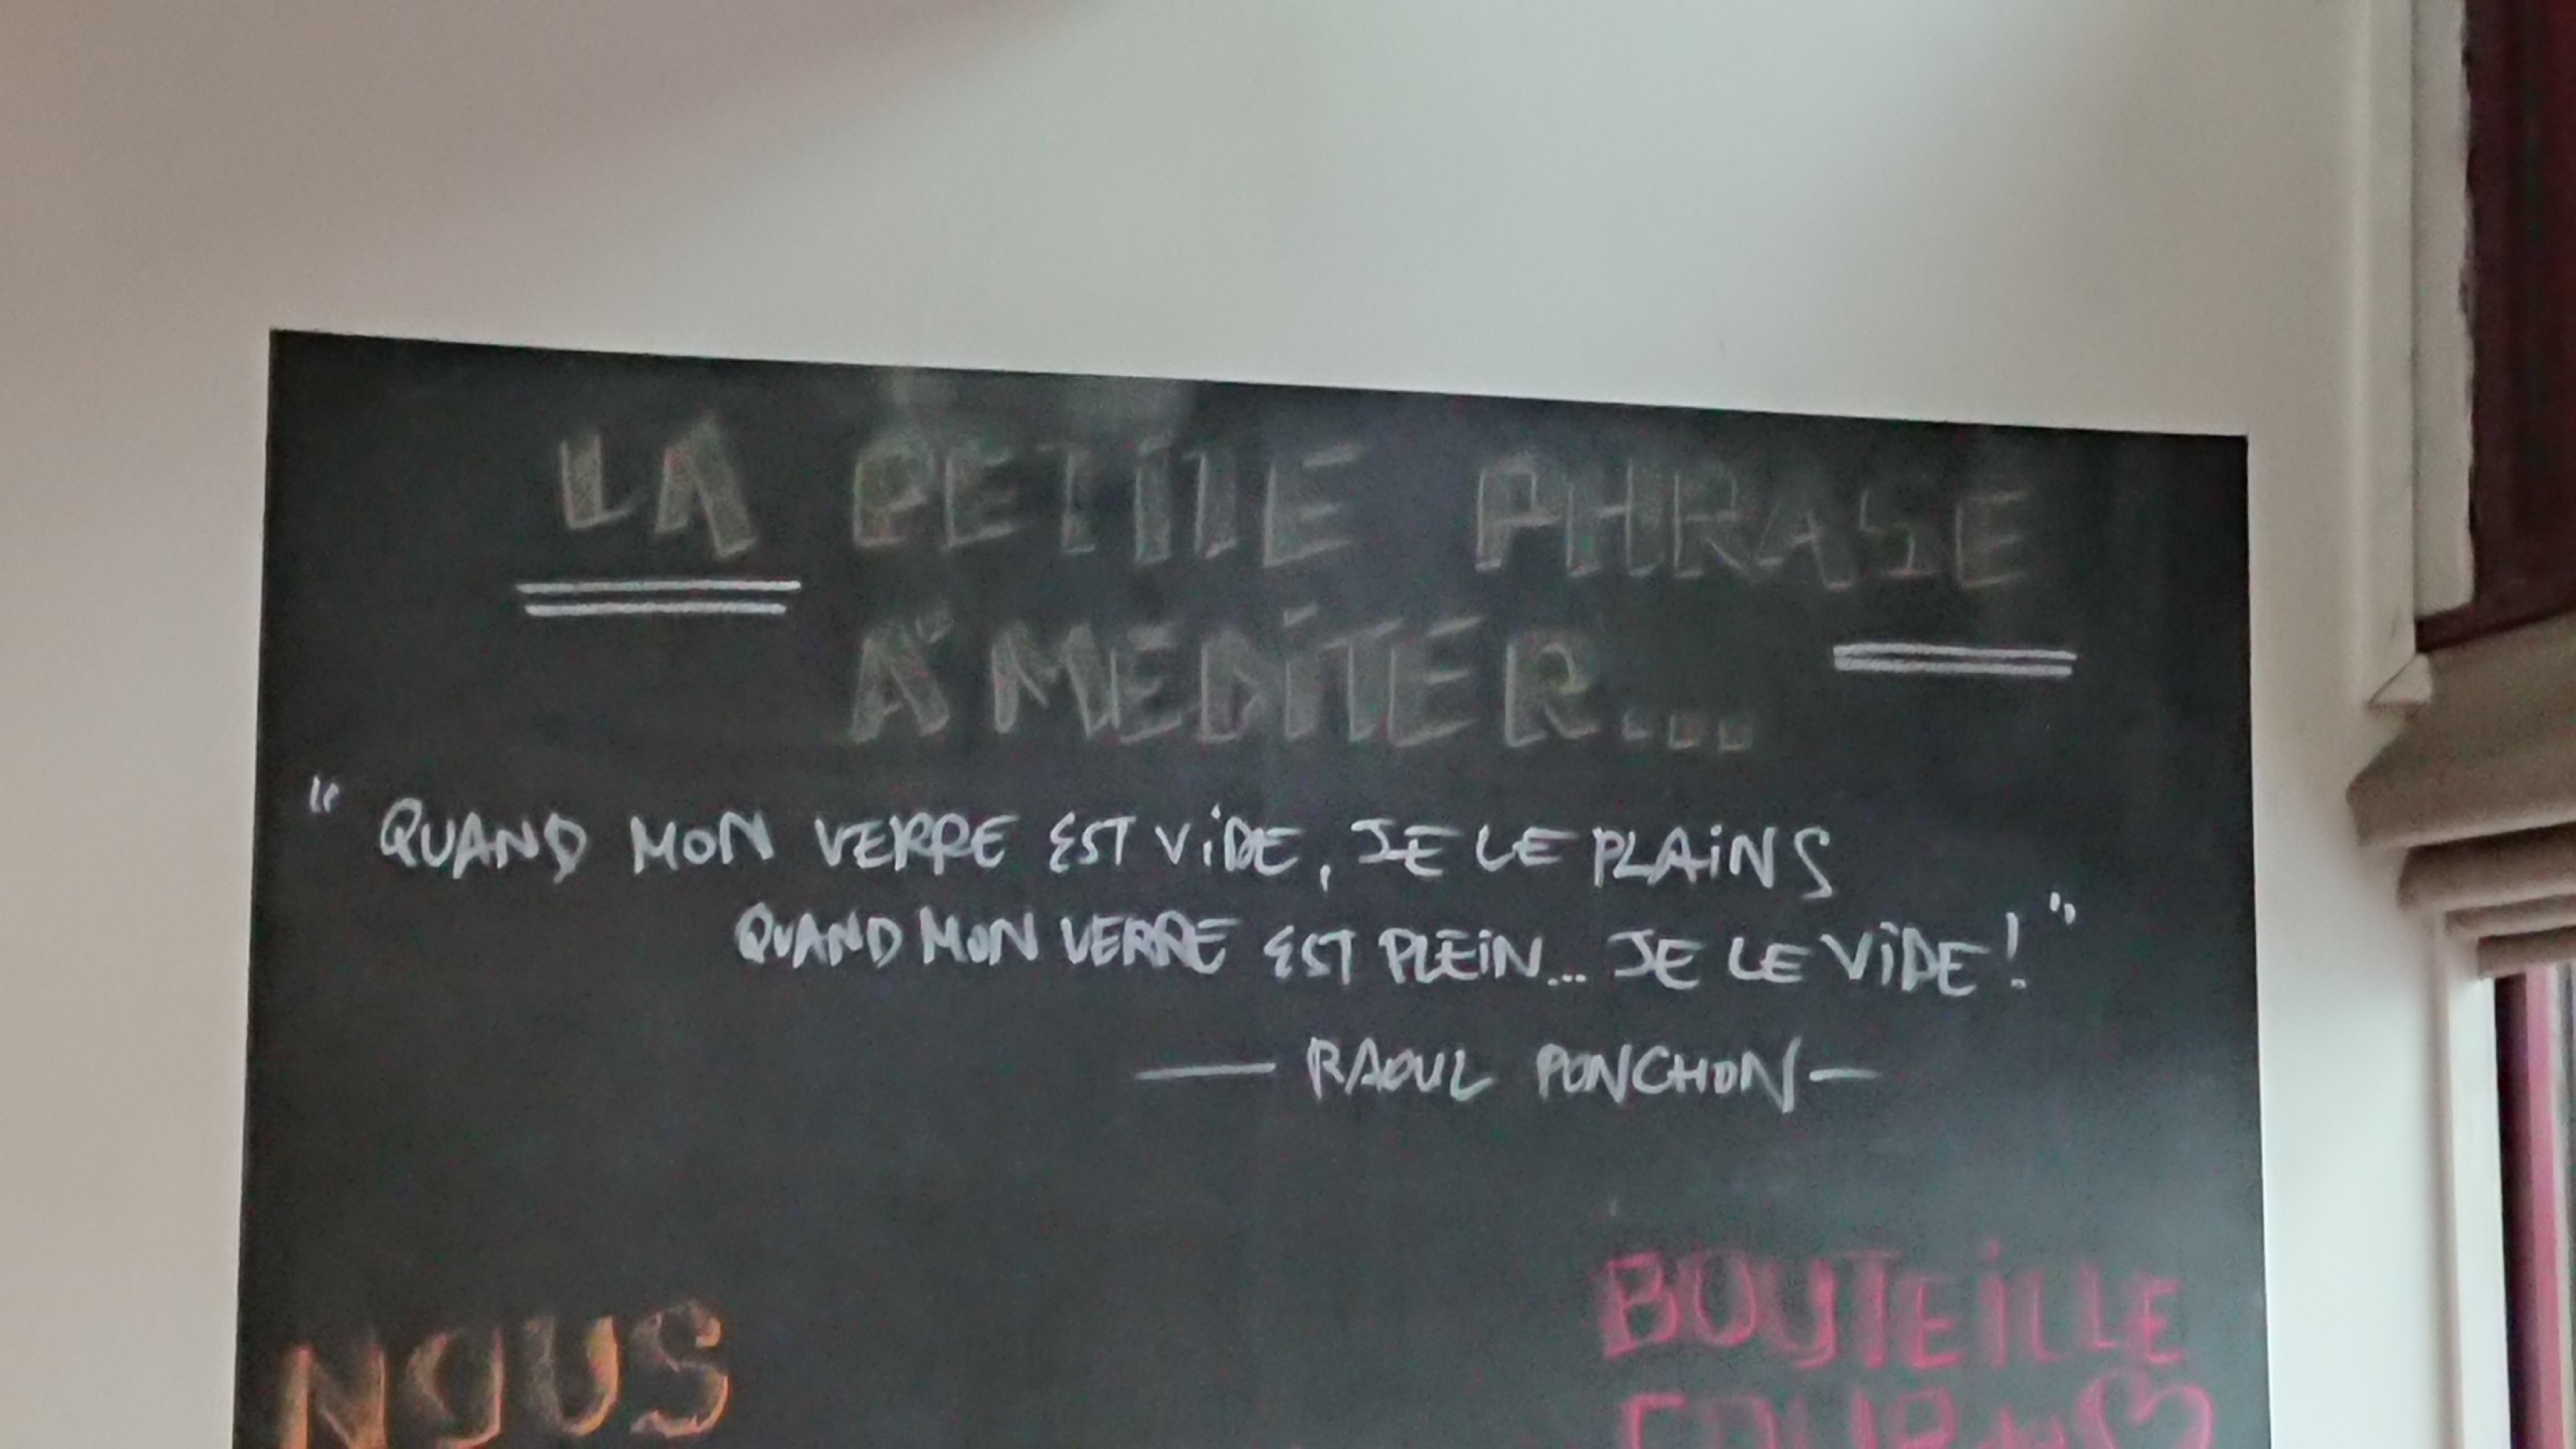 LA PETITE PHRASE
À MEDITER...
" QUAND MON VERRE EST VIDE, JE LE PLAINS
QUAND MON VERRE EST PLEIN... JE LE VIDE! "
— RAOUL PONCHON —
NOUS
BOUTEILLE
COUP de